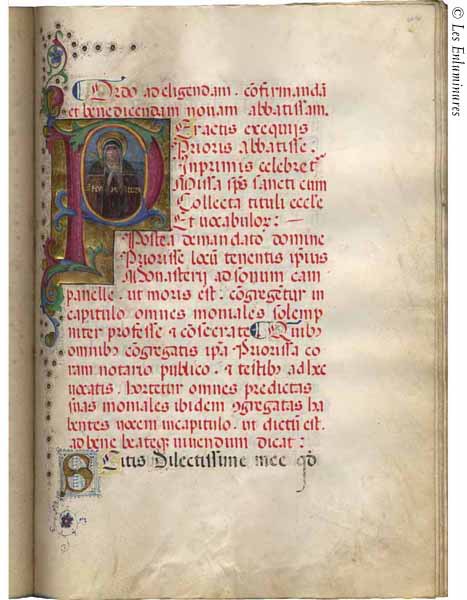 Ordo ad eligendam . cōfirmandā
et benedicendam nouam abbatissam.
Peractis exequijs
Prioris abbatisse.
Inprimis celebret̄
Missa sp̄s sancti cum
Collecta tituli eccle
Et uocabulor: —
Postea demandato domine
Priorisse locū tenentis ipsius
Monasterij ad sonum cam
panelle . ut moris est . cōgregētur in
capitulo omnes moniales solemp
niter professe & cōsecrate Quibus
omnibus cōgregatis ipa Priorissa co
ram notario publico . & testibus ad hec
uocatis . hortetur omnes predictas
suas moniales ibidem ᵹgregatas ha
bentes uocem in capitulo . ut dictū est.
ad bene beateqȝ uiuendum dicat :
Scitis Dilectissime mee qd̄
© Les Enluminures